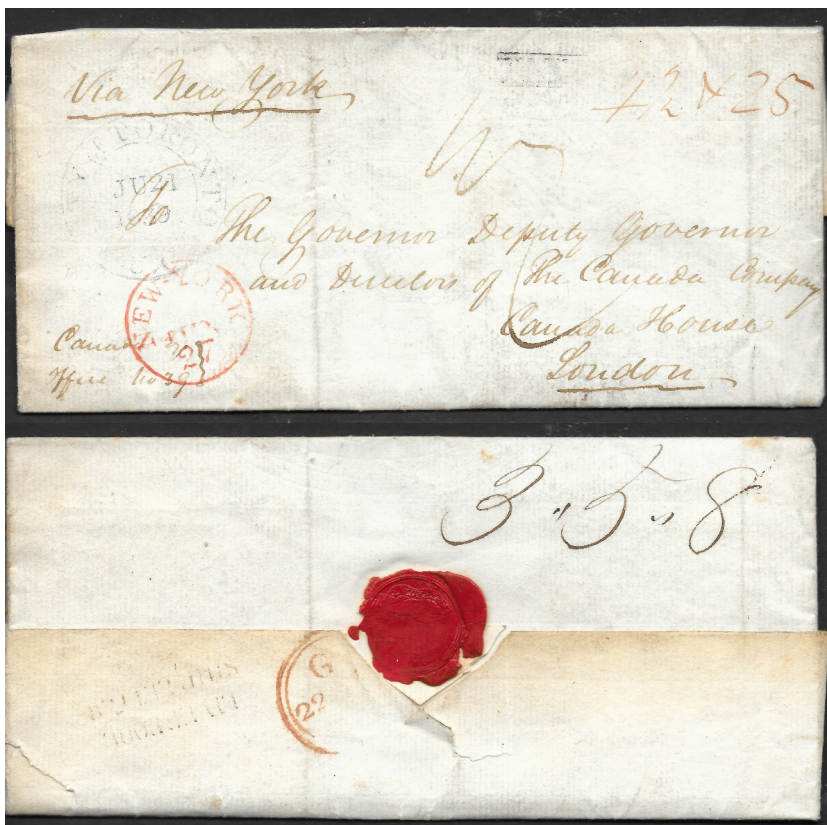 Via New York
42 + 25
TORONTO
JU 21
To
The Governor Deputy Governor
and Directors of The Canada Company
Canada House
London
NEW-YORK
JUN
27
Canada
Office No 39
3 " 5 " 8
G
22
SHIP LETTER
LIVERPOOL